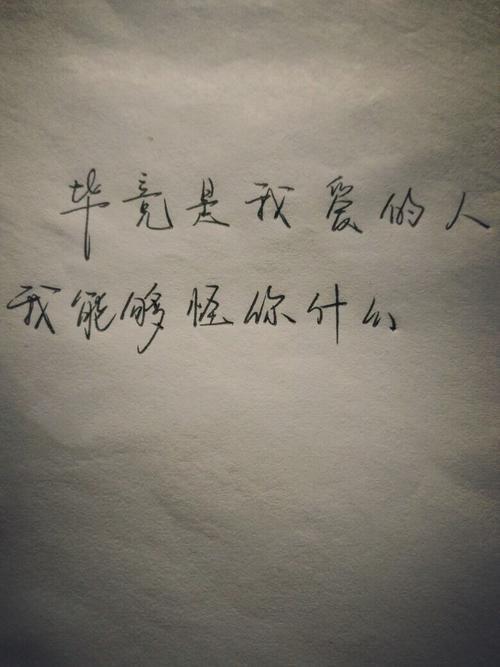 毕竟是我爱的人
我能够怪你什么